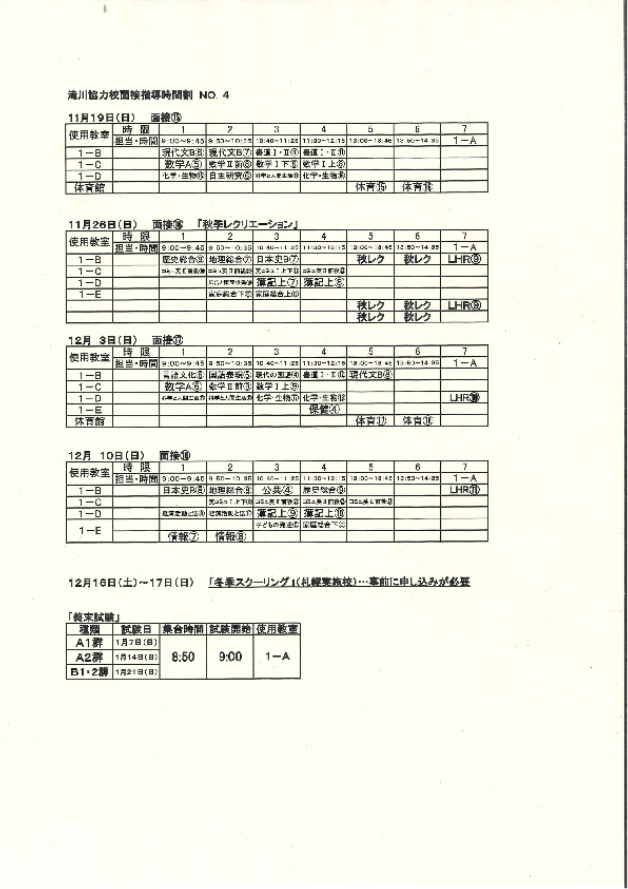 滝川協力校面接指導時間割 NO. 4
11月19日(日) 面接⑮
使用教室 時限 1 2 3 4 5 6 7
担当・時間 9:00~9:45 9:50~10:35 10:40~11:25 11:30~12:15 13:00~13:45 13:50~14:35 1-A
1-B 現代文B⑥ 現代文B⑦ 書道Ⅰ・Ⅱ 書道Ⅰ・Ⅱ
1-C 数学A⑤ 数学Ⅱ前⑥ 数学Ⅰ下 数学Ⅰ上
1-D 化学・生物 自主研究 化学・生物
体育館 体育⑮ 体育⑯
11月26日(日) 面接⑯ 『秋季レクリエーション』
使用教室 時限 1 2 3 4 5 6 7
担当・時間 9:00~9:45 9:50~10:35 10:40~11:25 11:30~12:15 13:00~13:45 13:50~14:35 1-A
1-B 歴史総合 地理総合⑦ 日本史B⑦ 秋レク 秋レク LHR⑨
1-C
1-D 簿記上⑦ 簿記上⑧
1-E 家庭総合下 家庭総合上
秋レク 秋レク LHR⑨
秋レク 秋レク
12月 3日(日) 面接⑰
使用教室 時限 1 2 3 4 5 6 7
担当・時間 9:00~9:45 9:50~10:35 10:40~11:25 11:30~12:15 13:00~13:45 13:50~14:35 1-A
1-B 言語文化 国語表現 現代の国語 書道Ⅰ・Ⅱ 現代文B⑧
1-C 数学A⑥ 数学Ⅱ前 数学Ⅰ上
1-D 化学・生物 化学・生物 LHR⑩
1-E 保健④
体育館 体育⑰ 体育⑱
12月 10日(日) 面接⑱
使用教室 時限 1 2 3 4 5 6 7
担当・時間 9:00~9:45 9:50~10:35 10:40~11:25 11:30~12:15 13:00~13:45 13:50~14:35 1-A
1-B 日本史B⑧ 地理総合⑧ 公共④ 歴史総合 LHR⑪
1-C
1-D 簿記上⑨ 簿記上⑩
1-E 子どもの発達 家庭総合下
情報⑦ 情報⑧
12月16日(土)~17日(日) 「冬季スクーリング」(札幌実施校)…事前に申し込みが必要
「後末試験」
種類 試験日 集合時間 試験開始 使用教室
A1群 1月7日(日)
A2群 1月14日(日) 8:50 9:00 1-A
B1・2群 1月21日(日)